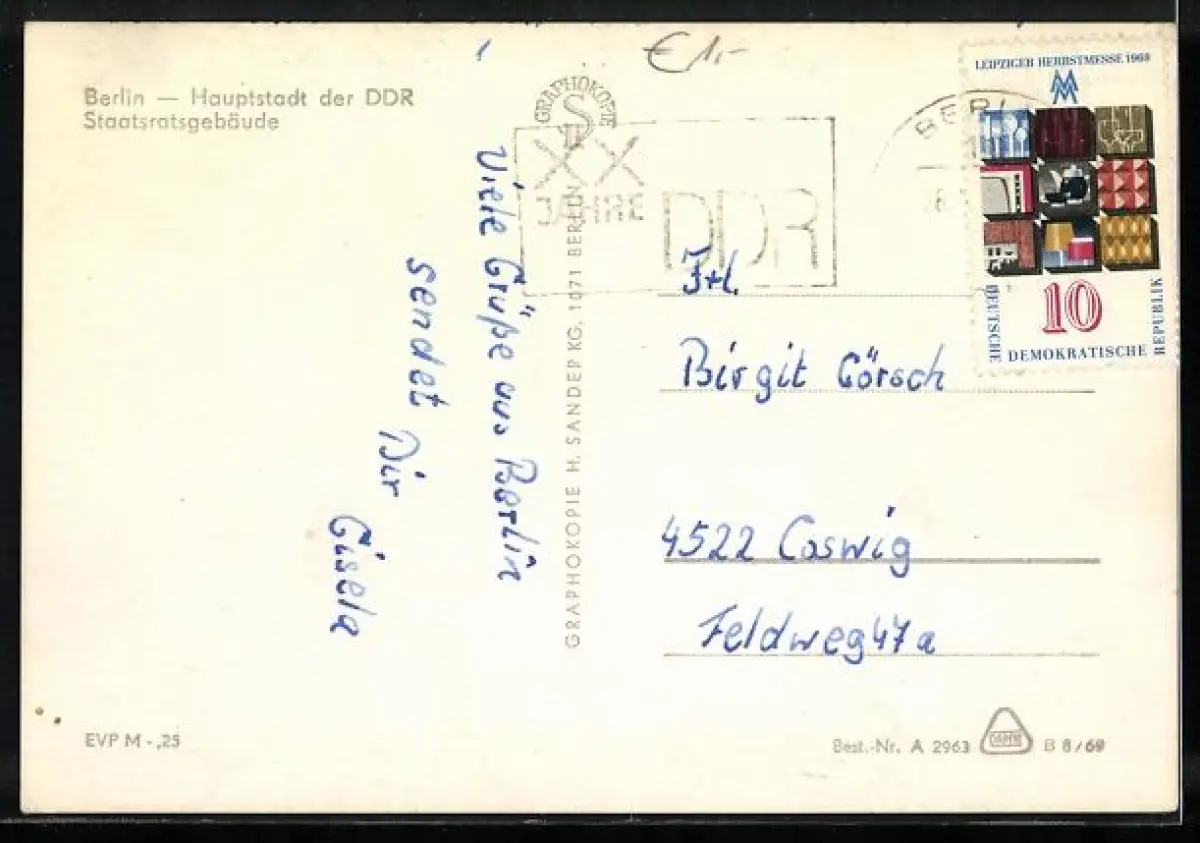 € 1,-
Berlin — Hauptstadt der DDR
Staatsratsgebäude
GRAPHOKOPIE
XX
JAHRE
DDR
LEIPZIGER HERBSTMESSE 1968
10
DEUTSCHE
DEMOKRATISCHE
REPUBLIK
Viele Grüße aus Berlin
sendet Dir
Gisela
GRAPHOKOPIE H. SANDER KG, 1071 BERLIN
Frl.
Birgit Görsch
4522 Coswig
Feldweg 47a
EVP M -,25
Best.-Nr. A 2963
B 8/69